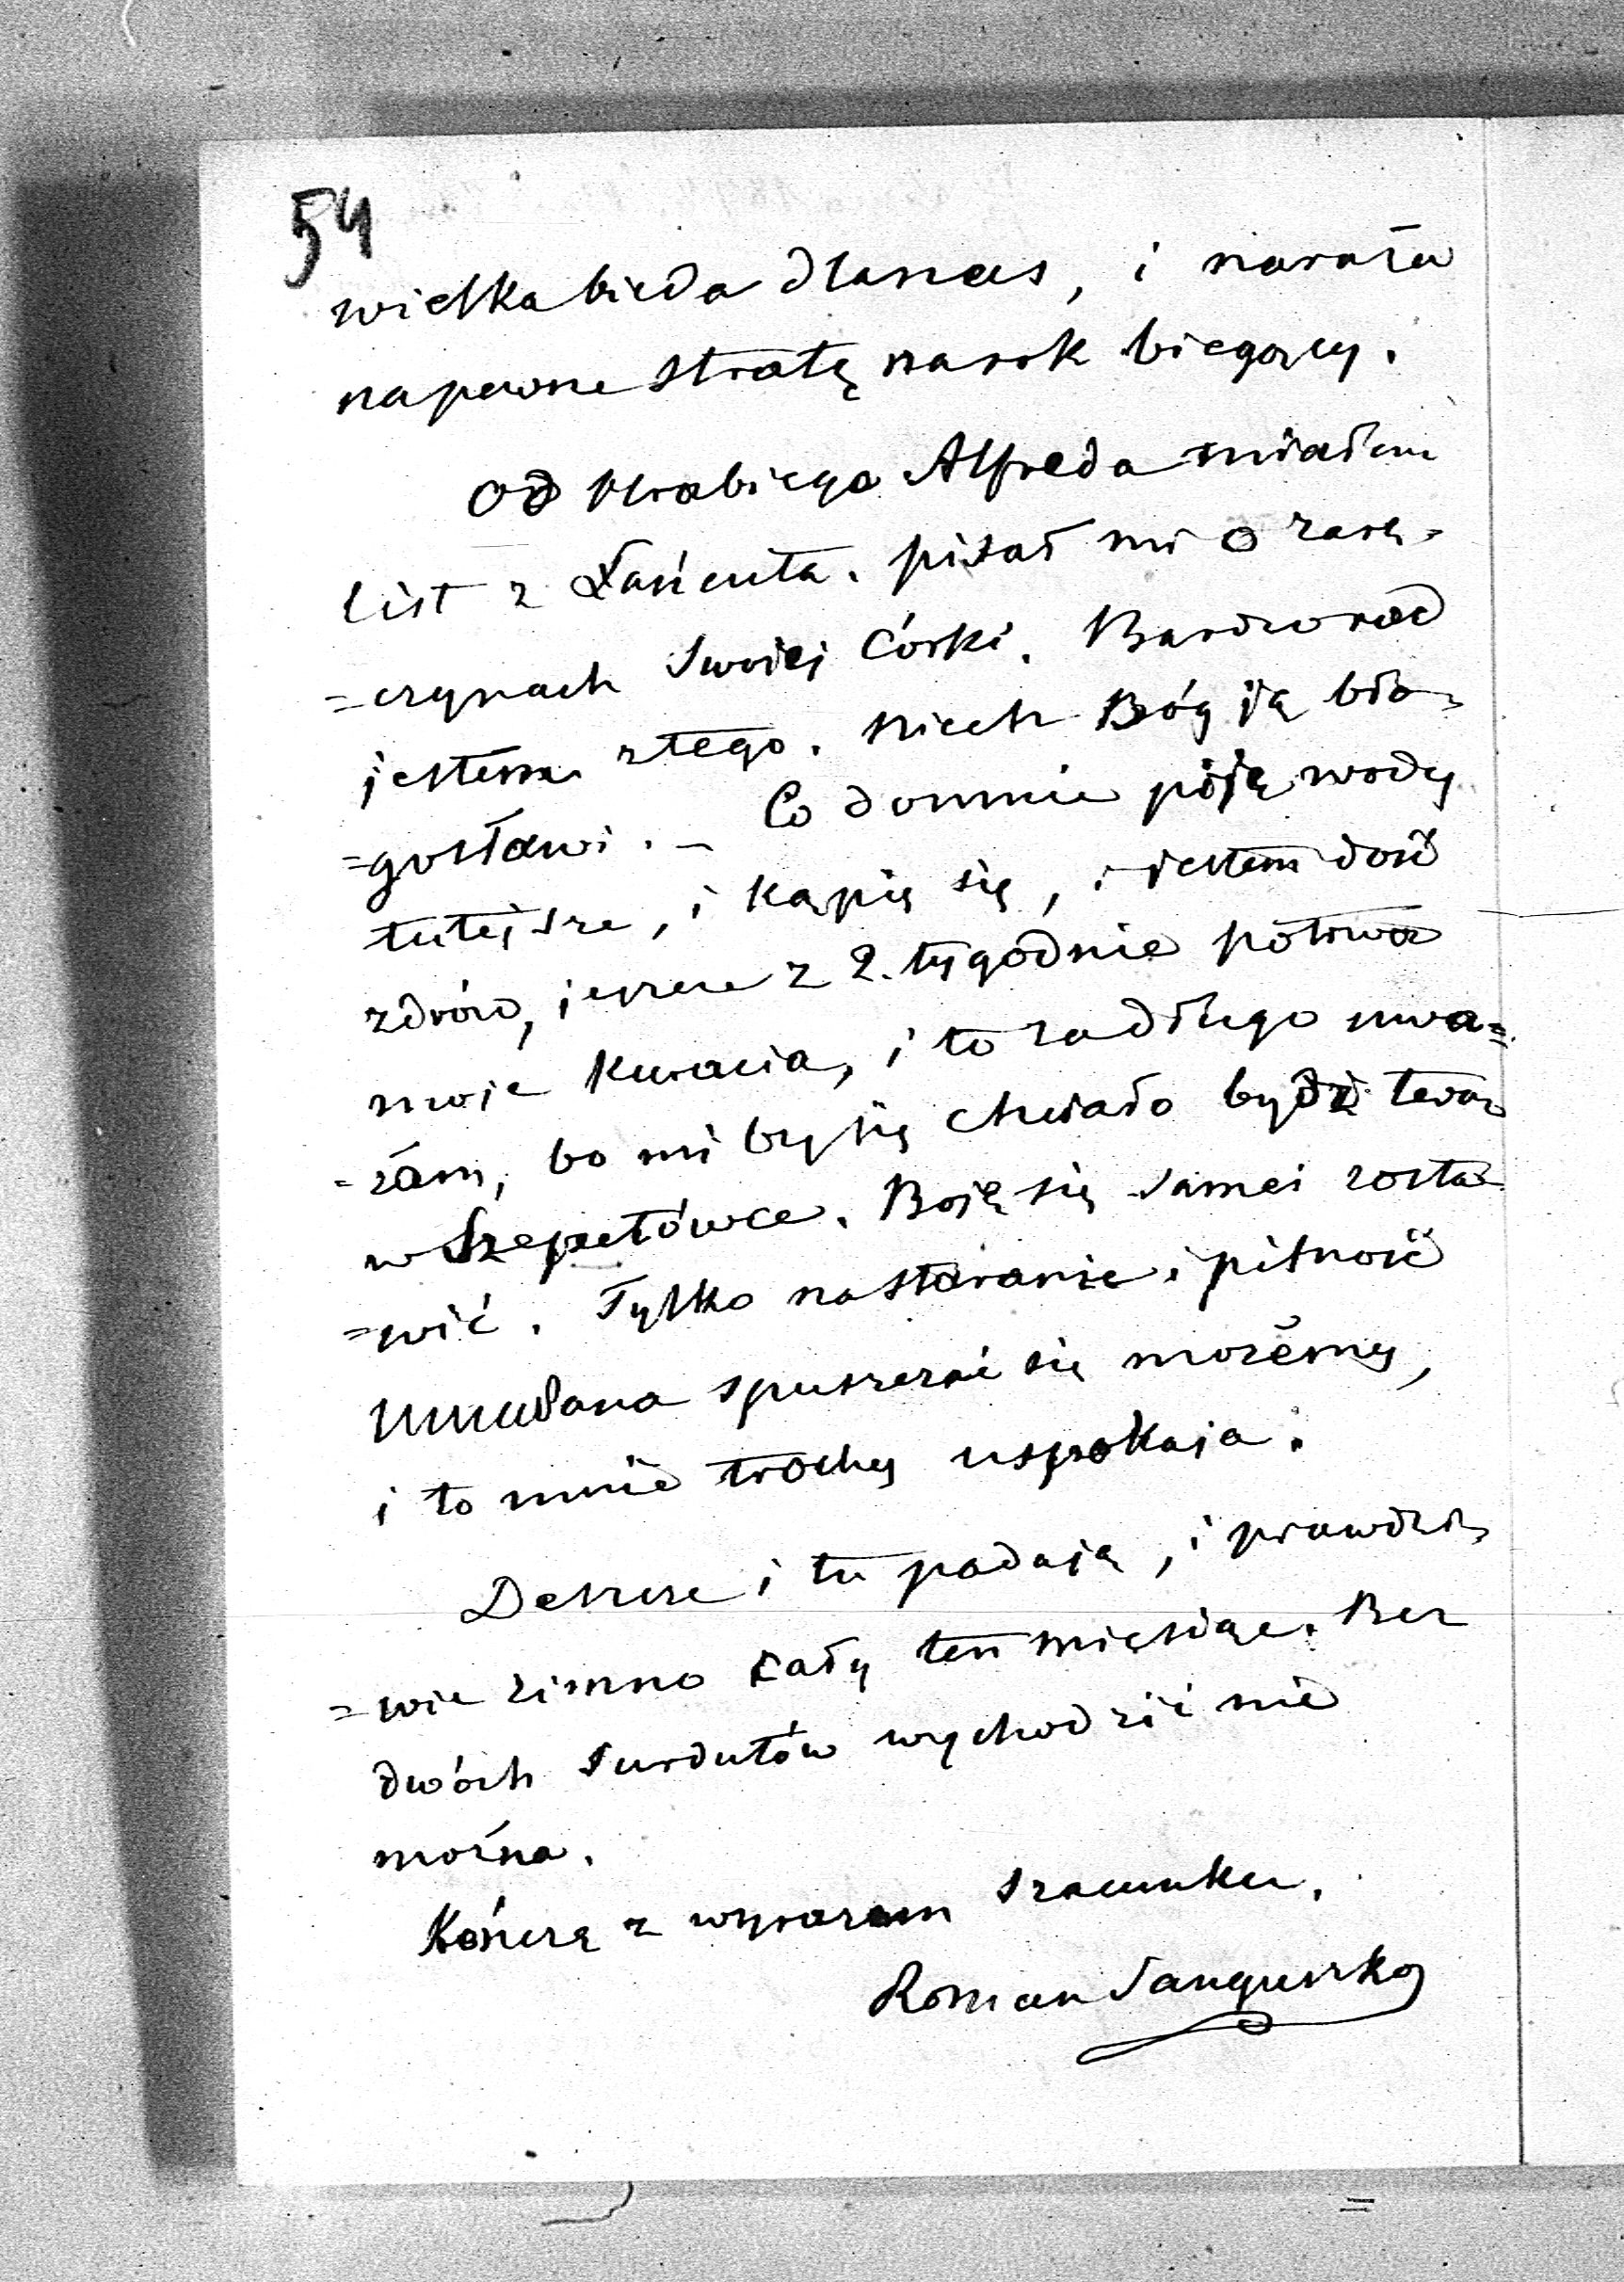 54
wielka bieda dla nas, i naraża
na pewne stratę na rok biegący.
Od Hrabiego Alfreda miałem
list z Łańcuta. pisał mi o zarę=
=czynach swoiej Córki. Bardzo rad
jestem z tego. niech Bóg ią bło=
=gosławi. – Co do mnie piję wody
tutejsze, i kąpię się, i jestem dość
zdrów, jeszcze z 2. tygodnie potrwa
moje kuracia, i to za długo uwa=
=żam, bo mi by się chciało bydź teraz
w Szepetówce. Boję się Jamei zosta=
=wić. Tylko na staranie i pilność
spuszczać się możemy,
i to mnie trochę uspokaja.
Deszcze i tu padają, i prawdzi=
=wie zimno cały ten miesiąc. Bez
dwóch surdutów wychodzić nie
można.
Kończę z wyrazem szacunku.
Roman Sanguszko